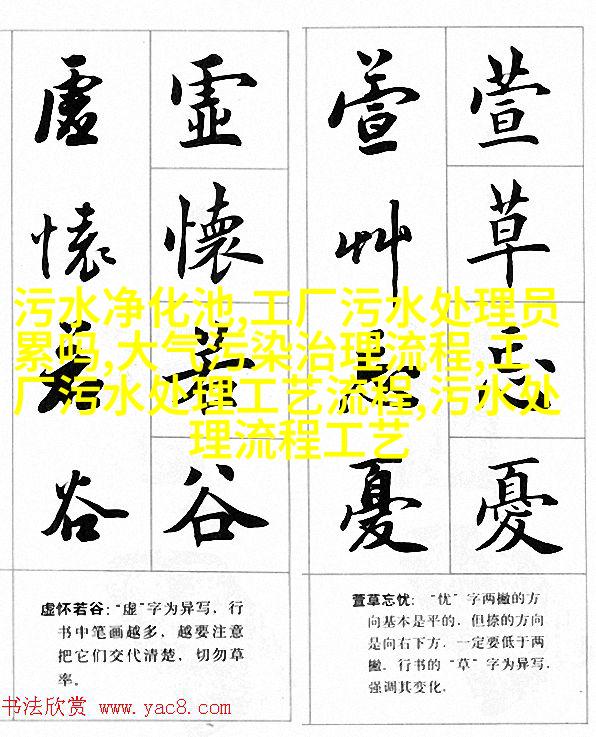 虛懷若谷
虛懷若谷
萱艸忘憂
萱草忘憂
污水净化池,工厂污水处理员
累吗,大气污染治理流程,工
厂污水处理工艺流程,污水处
理流程工艺
虚怀若谷:“虚”字为异写，行
书中笔画越多，越要注意
把它们交代清楚，切勿草
率。
萱草忘忧:“忧”字两撇的方
向基本是平的，但捺的方向
是向右下方，一定要低于两
撇。行书的“草”字为异写，
强调其变化。
书法欣赏 www.yac8.com